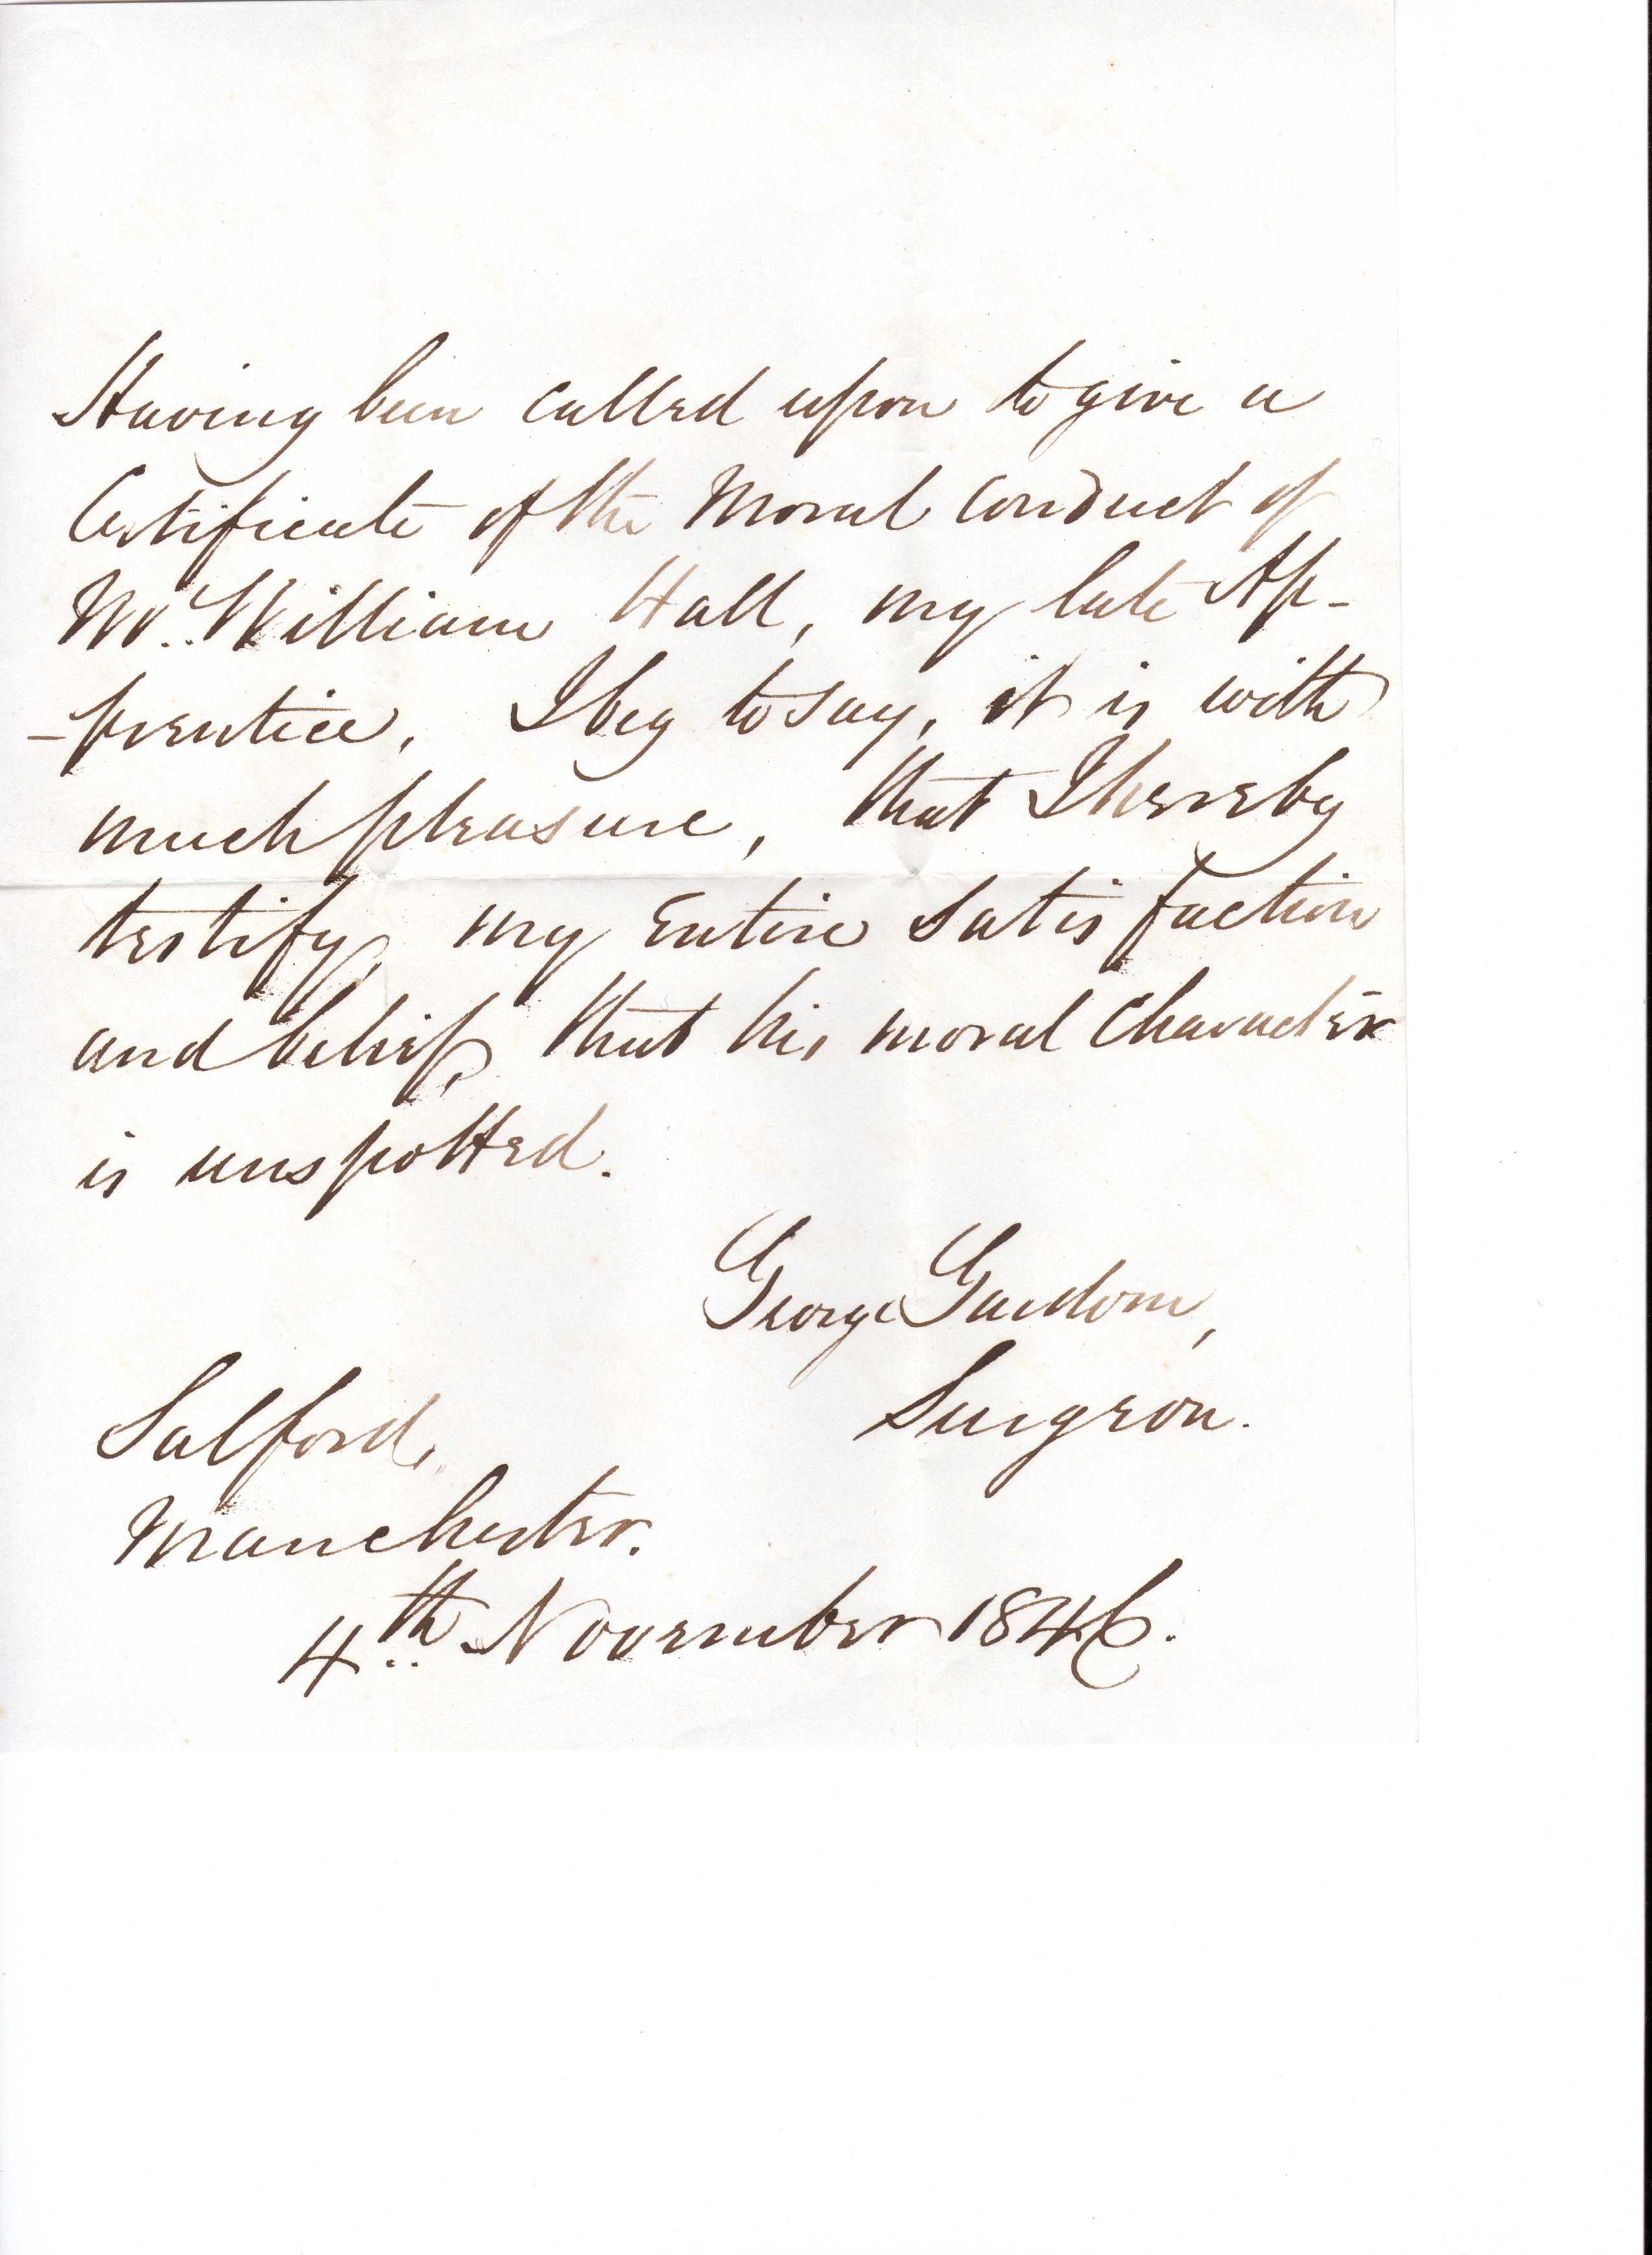 Having been called upon to give a
Certificate of the Moral Conduct of
Mr. William Hall, my late Ap-
-prentice, I beg to say, it is with
much pleasure, that I hereby
testify, my Entire Satisfaction
and belief, that his moral Character
is unspotted.
George Gardom,
Surgeon.
Salford,
Manchester.
4th November 1846.